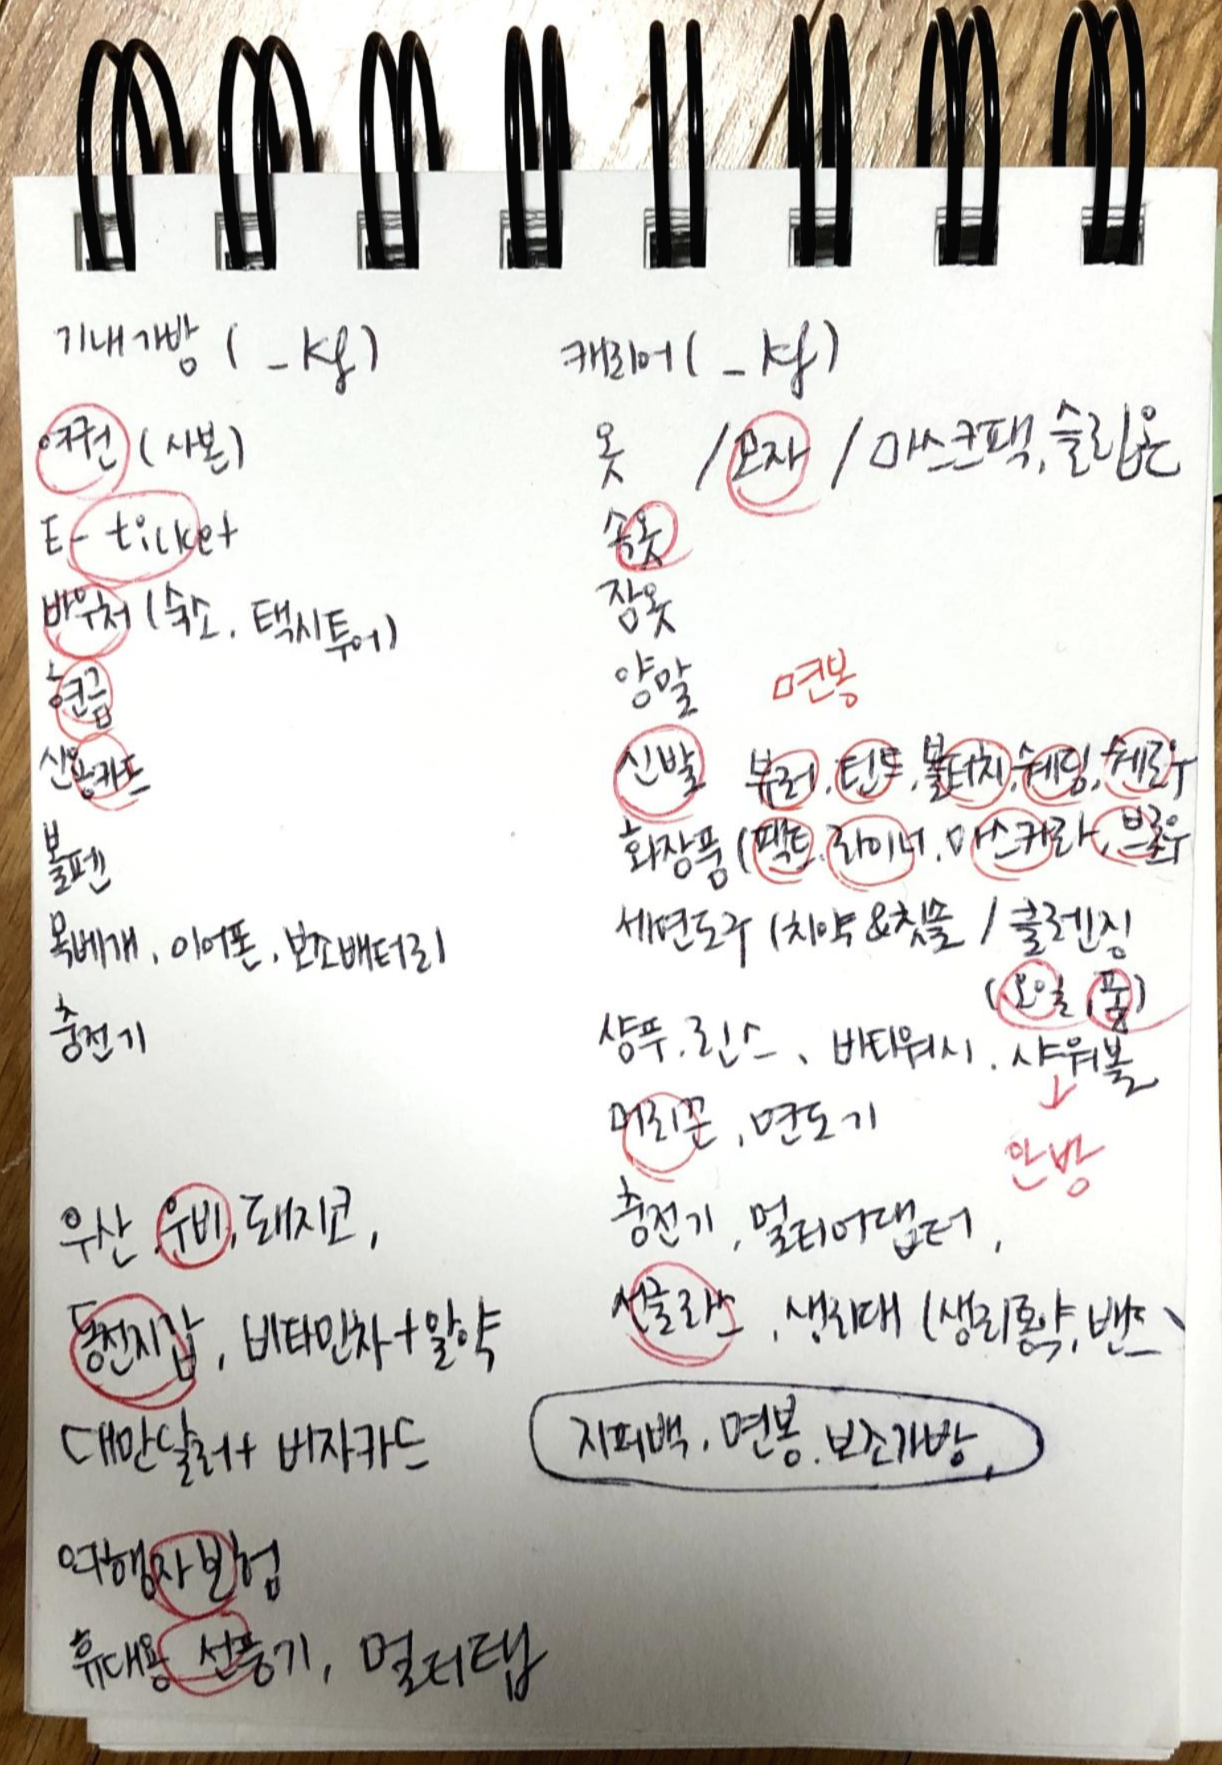 기내가방 ( _ kg )
여권 (사본)
E - ticket
바우처 (숙소, 택시투어)
현금
신용카드
볼펜
목베개, 이어폰, 보조배터리
충전기
우산, 우비, 돼지코,
동전지갑, 비타민차+알약
대만달러+ 비자카드
여행자보험
휴대용 선풍기, 멀티탭
캐리어 ( _ kg )
옷 / 모자 / 마스크팩, 슬립온
속옷
잠옷
양말 면봉
신발 뷰러, 틴트, 볼터치, 쉐딩, 쉐도우
화장품 (팩트, 라이너, 마스카라, 브로우
세면도구 (치약&칫솔 / 클렌징
(오일, 폼)
샴푸, 린스, 바디워시, 샤워볼
↓
안방
머리끈, 면도기
충전기, 멀티어댑터,
선글라스, 생리대 (생리통약, 밴드)
지퍼백, 면봉, 보조가방,